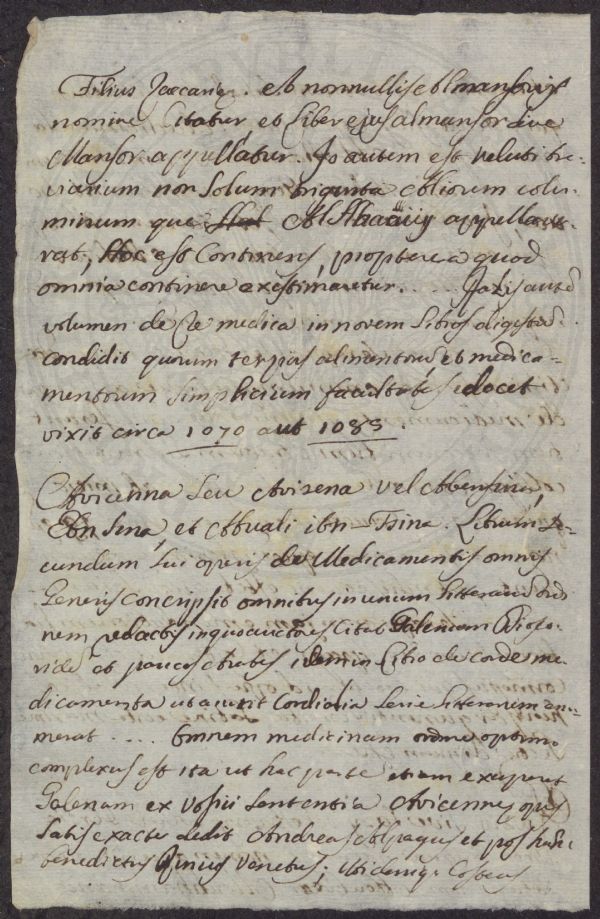 Filius Zaccariæ. et nonnullis Almansoris
nomine Citatur, et Liber ejus almansor sive
Mansor appellatur. Is autem est veluti bre-
viarium non Solum triginta Aliorum volu-
minum quæ Al appella-
rat, Hoc est Continens, propterea quod
omnia continere existimaretur.... autē
volumen de Re medica in novem Libros digestū
condidit quorum tertius alimentorū et medica-
mentorum simplicium facultates edocet
vixit circa 1070 aut 1085.
Avicenna Seu Avizena vel Abensina,
Ebn Sena, et Abuali ibn-Tsina. Librum Se-
cundum Sui operis de Medicamentis omnis
Generis Conscripsit omnibus in unum litterarū ordi
nem redactis in quo auctores Citat Galenum Diosco-
ridē et paucos Arabes idem in Libro de corde me-
dicamenta ut aiunt Cordialia Serie litterarum enu-
merat.... Omnem medicinam ordine optimo
complexus est ita ut hac parte etiam exuperet
Galenum ex Vossii Sententia Avicennæ opus
Satis exacte dedit Andreas Alpagus et post hunc
benedictus Rinius Venetus; Itidemq. Costeus